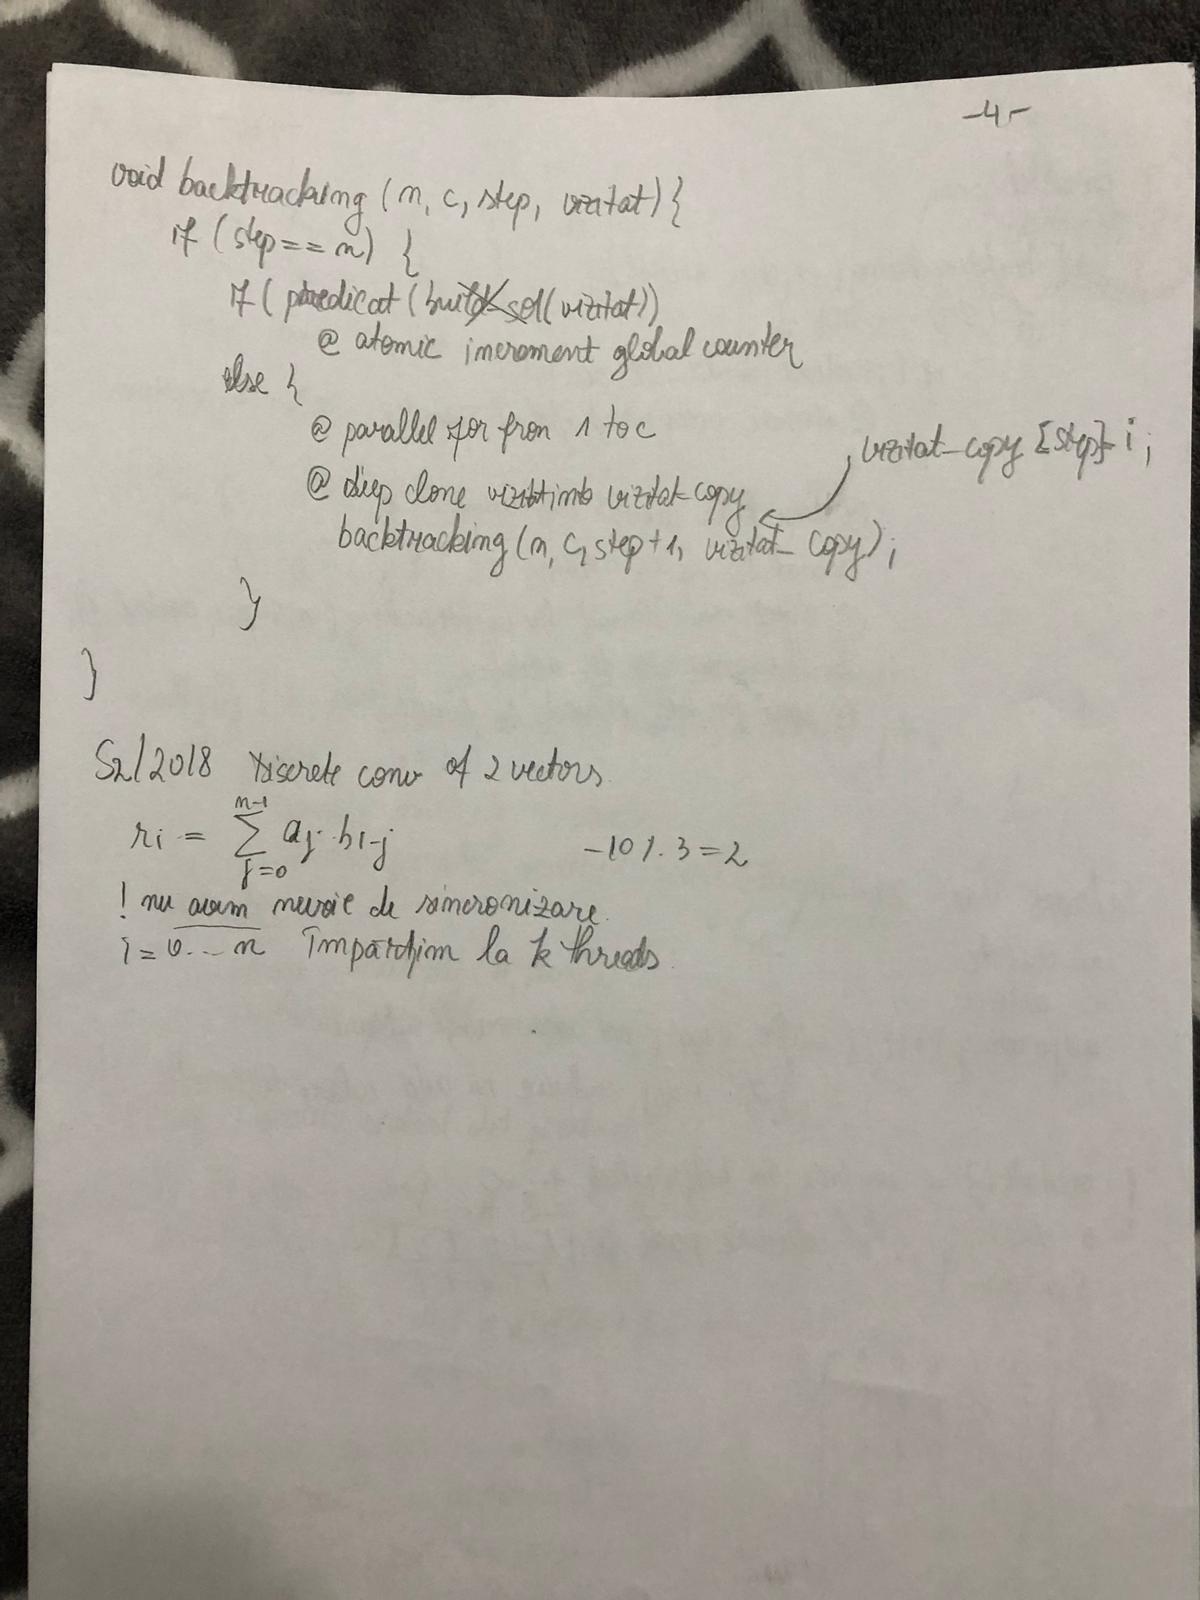 -4-
void backtracking (n, c, step, vizitat) {
if (step == n) {
if ( predicat (build_sol(vizitat))
@ atomic increment global counter
else {
@ parallel for from 1 to c
vizitat_copy [step] = i ;
@ deep clone vizitat into vizitat_copy
backtracking (n, c, step+1, vizitat_copy) ;
}
}
S2/2018 Discrete conv of 2 vectors
n-1
ri = ∑ aj · bi-j
-10 % 3 = 2
j=0
! nu avem nevoie de sincronizare
i = 0...n Împărțim la k threads